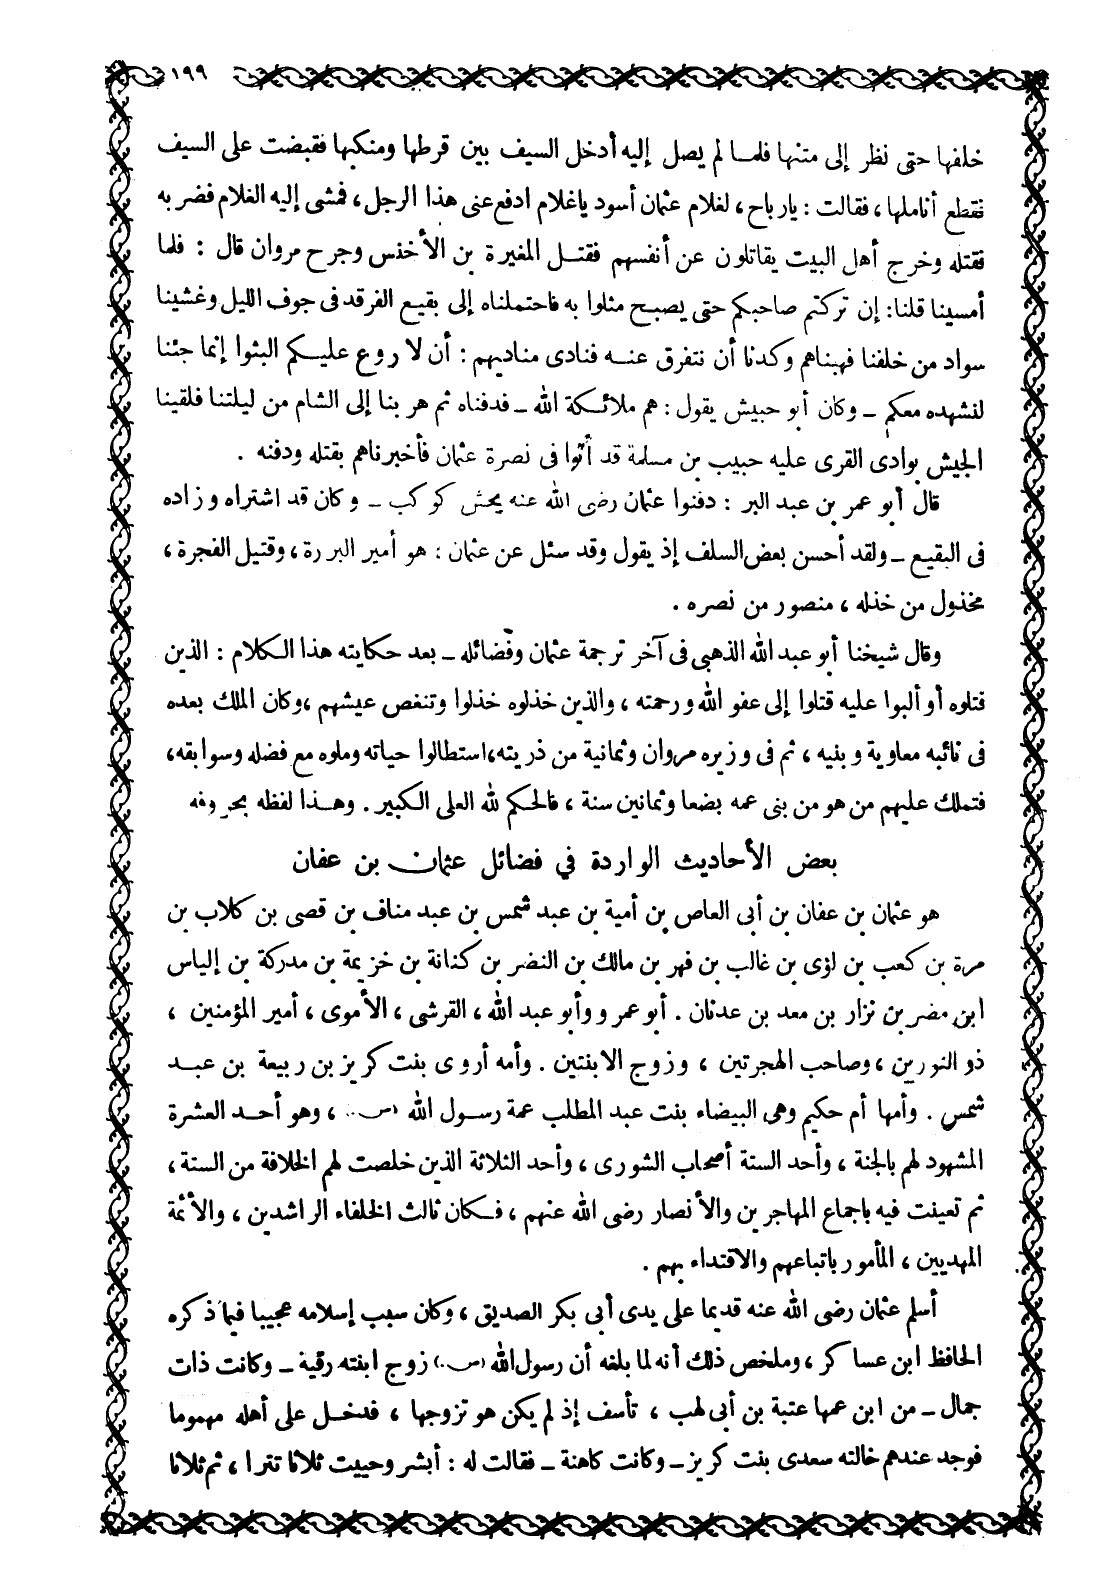 ١٩٩
خلفها حتى نظر إلى متنها فلمـا لم يصل إليه أدخل السيف بين قرطها ومنكبها فقبضت على السيف
فقطع أناملها ، فقالت : يارباح ، لغلام عثمان أسود ياغلام ادفع عنى هذا الرجل ، فمشى إليه الغلام فضربه
فقتله وخرج أهل البيت يقاتلون عن أنفسهم فقتـل المغيرة بن الأخنس وجرح مروان قال : فلما
أمسينا قلنا : إن تركتم صاحبكم حتى يصبح مثلوا به فاحتملناه إلى بقيع الفرقد فى جوف الليل وغشينا
سواد من خلفنا فهبناهم وكدنا أن نتفرق عنـه فنادى مناديهم : أن لا روع عليـكم البثوا إنما جئنا
لنشهده معكم ـ وكان أبو حبيش يقول : هم ملائـكة الله ـ فدفناه ثم هربنا إلى الشام من ليلتنا فلقينا
الجيش بوادى القرى عليه حبيب بن مسلمة قد أتوا فى نصرة عثمان فأخبرناهم بقتله ودفنه .
قال أبو عمر بن عبد البر : دفنوا عثمان رضى الله عنه بحش كوكب ـ وكان قد اشتراه وزاده
فى البقيع ـ ولقد أحسن بعض السلف إذ يقول وقد سئل عن عثمان : هو أمير البررة ، وقتيل الفجرة ،
مخذول من خذله ، منصور من نصره .
وقال شيخنا أبو عبد الله الذهبى فى آخر ترجمة عثمان وفضائله ـ بعد حكايته هذا الـكلام : الذين
قتلوه أو ألبوا عليه قتلوا إلى عفو الله ورحمته ، والذين خذلوه خذلوا وتنغص عيشهم ، وكان الملك بعده
فى نائبه معاوية وبنيه ، ثم فى وزيره مروان وثمانية من ذريته ، استطالوا حياته وملوه مع فضله وسوابقه ،
فتملك عليهم من هو من بنى عمه بضعا وثمانين سنة ، فالحكم لله العلى الـكبير . وهـذا لفظه بحروفه
بعض الأحاديث الواردة في فضائل عثمان بن عفان
هو عثمان بن عفان بن أبى العاص بن أمية بن عبد شمس بن عبد مناف بن قصى بن كلاب بن
مرة بن كعب بن لؤى بن غالب بن فهر بن مالك بن النضر بن كنانة بن خزيمة بن مدركة بن إلياس
ابن مضر بن نزار بن معد بن عدنان . أبو عمرو وأبو عبد الله ، القرشى ، الأموى ، أمير المؤمنين ،
ذو النورين ، وصاحب الهجرتين ، وزوج الابنتين . وأمه أروى بنت كريز بن ربيعة بن عبـد
شمس . وأمها أم حكيم وهى البيضاء بنت عبد المطلب عمة رسول الله (س..) ، وهو أحـد العشرة
المشهود لهم بالجنة ، وأحد الستة أصحاب الشورى ، وأحد الثلاثة الذين خلصت لهم الخلافة من الستة ،
ثم تعينت فيه باجماع المهاجرين والأنصار رضى الله عنهم ، فـكان ثالث الخلفاء الراشدين ، والأئمة
المهديين ، المأمور باتباعهم والاقتداء بهم .
أسلم عثمان رضى الله عنه قديما على يدى أبى بكر الصديق ، وكان سبب إسلامه عجيبا فيما ذكره
الحافظ ابن عساكر ، وملخص ذلك أنه لما بلغه أن رسول الله (س..) زوج ابنته رقية ـ وكانت ذات
جمال ـ من ابن عمها عتبة بن أبى لهب ، تأسف إذ لم يكن هو تزوجها ، فدخـل على أهله مهموما
فوجد عندهم خالته سعدى بنت كريز ـ وكانت كاهنة ـ فقالت له : أبشر وحييت ثلاثا تترا ، ثم ثلاثا